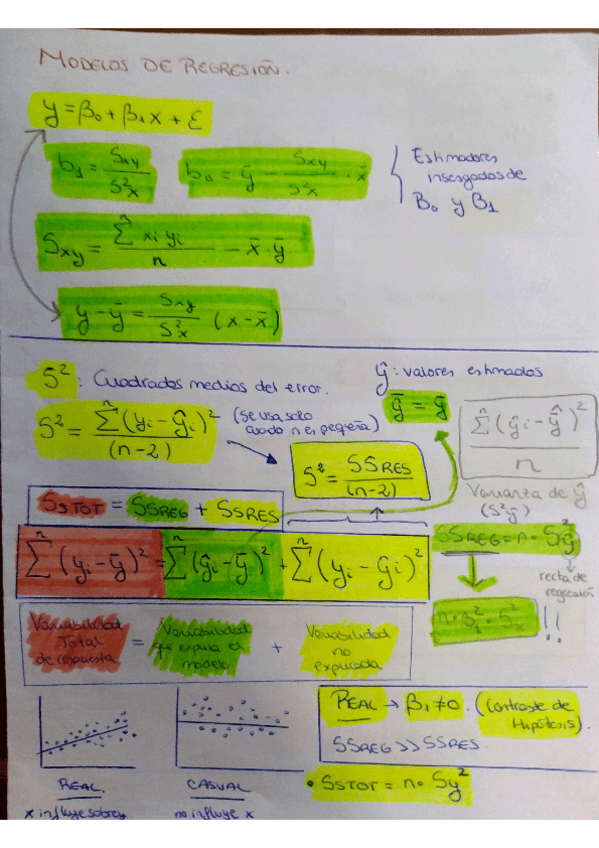 MODELOS DE REGRESIÓN.
y = β₀ + β₁x + ε
b₁ = Sxy / S²x
b₀ = ȳ - Sxy / S²x · x̄
Estimadores
insesgados de
B₀ y B₁
Sxy = Σⁿ xi yi / n - x̄ · ȳ
y - ȳ = Sxy / S²x (x - x̄)
S² : Cuadrados medios del error.
ŷ: valores estimados
S² = Σⁿ (yi - ŷi)² / (n-2)
(se usa solo
cuando n es pequeña)
S² = SSRES / (n-2)
Σⁿ (ŷi - ŷ̄)² / n
Varianza de ŷ
(S²ŷ)
SSTOT = SSREG + SSRES
SSREG = n · S²ŷ
recta de
regresión
Σⁿ (yi - ȳ)² = Σⁿ (ŷi - ȳ)² + Σⁿ (yi - ŷi)²
!!
Variabilidad
Total
de respuesta
=
Variabilidad
que explica el
modelo
+
Variabilidad
no
explicada
REAL → β₁ ≠ 0. (Contraste de
Hipótesis).
SSREG >> SSRES.
REAL.
x influye sobre y
CASUAL
no influye x
• SSTOT = n · Sy²